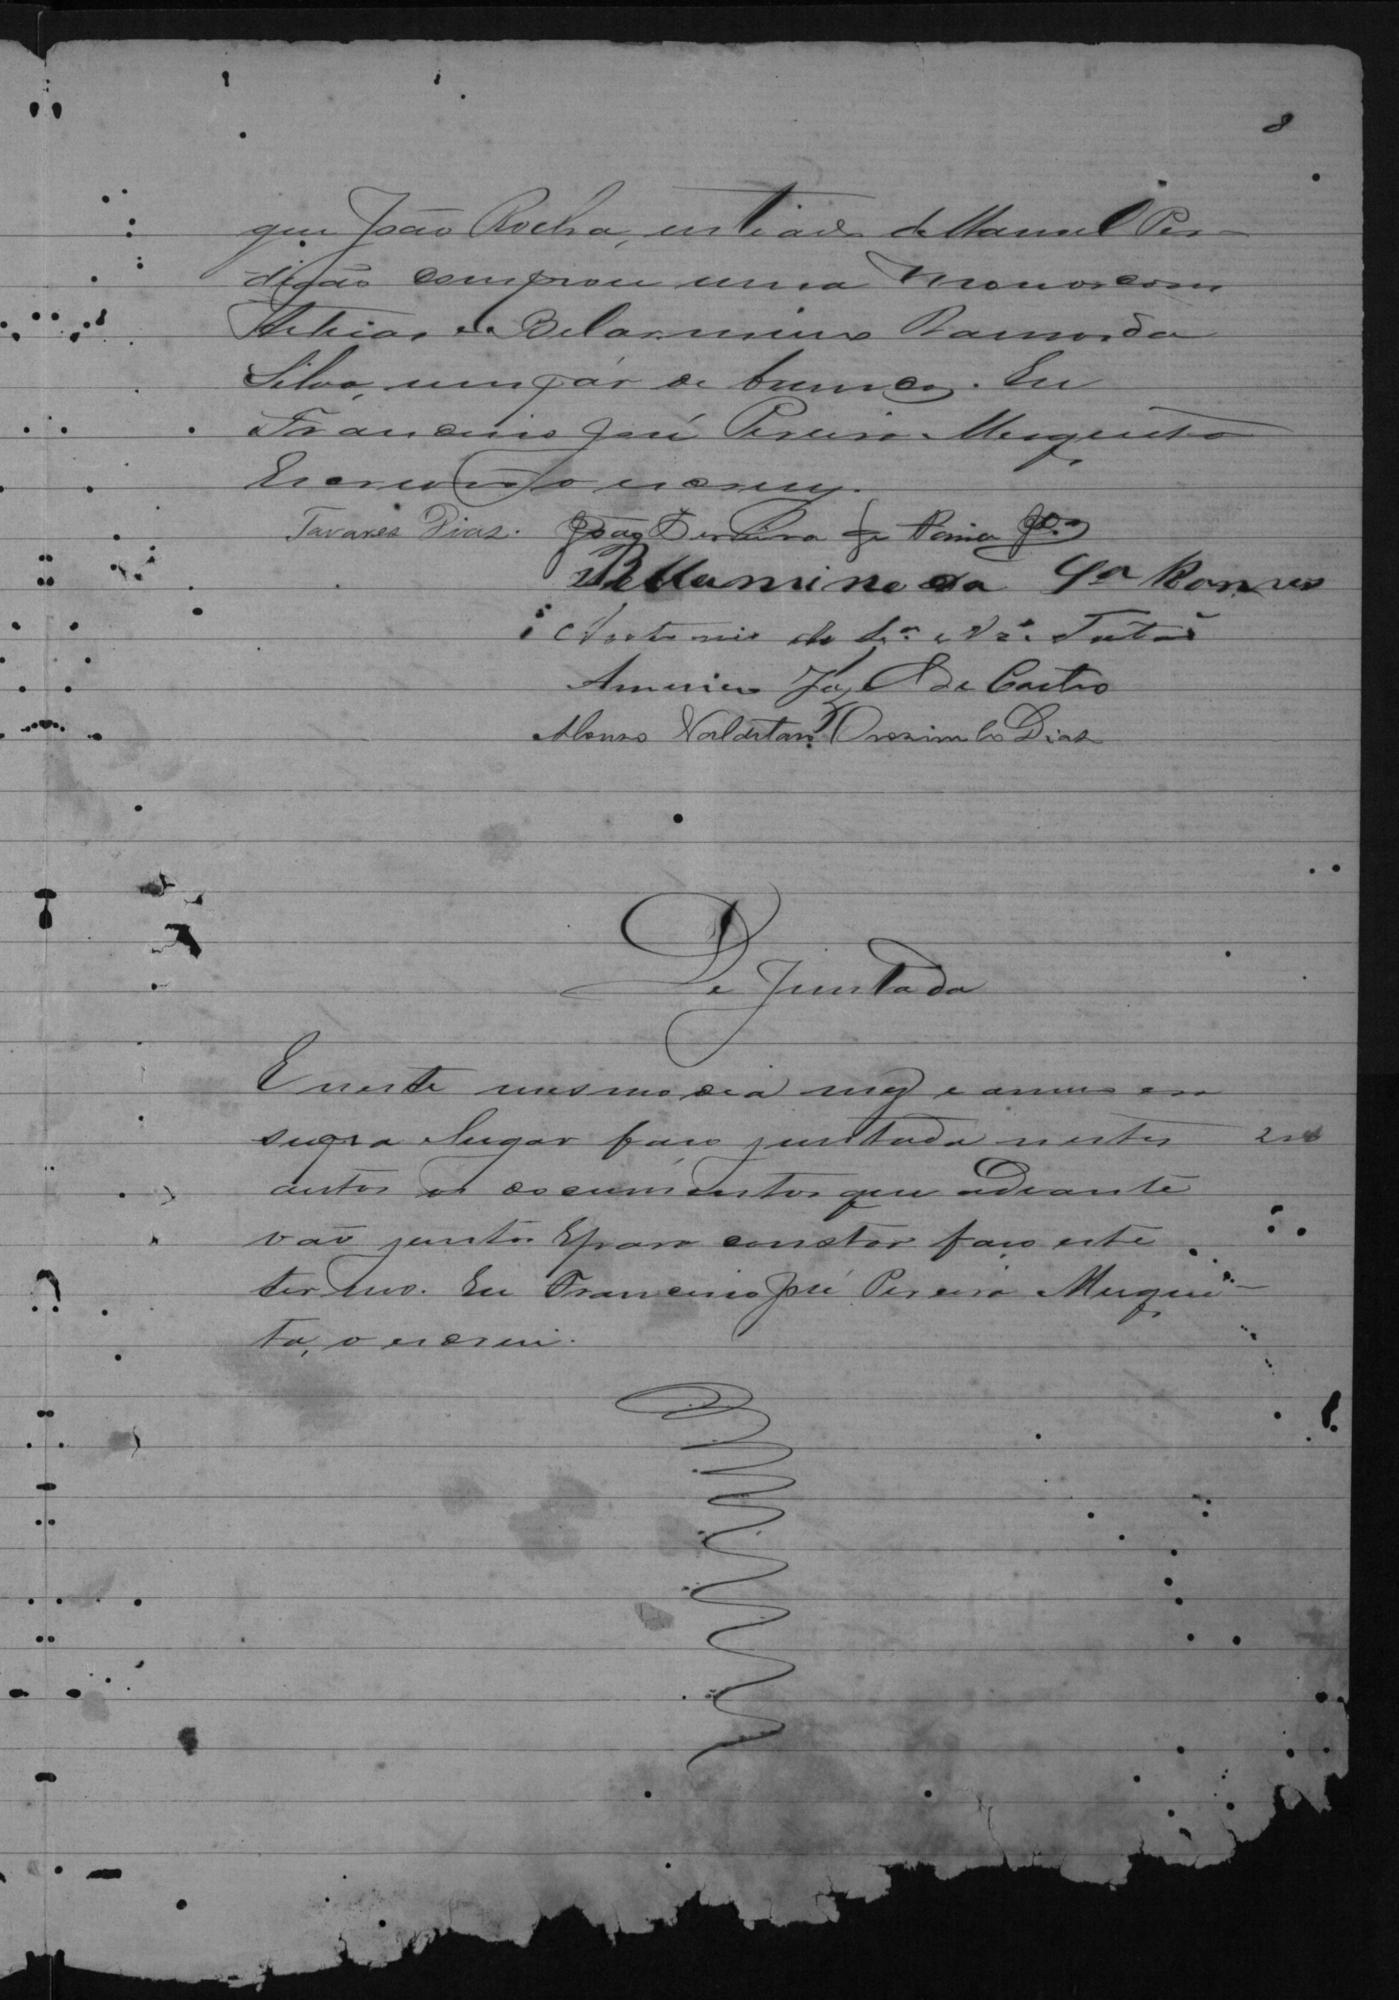 8
que João Rocha, enteado de Manuel Per-
digão comprou uma
e Belarmino Ramos da
Silva, um par de brincos. Eu
Francisco José Pereira Mesquita
Escrivão o escrevy.
Tavares Dias. João Ferreira de
Bellarmino da Sª Ramos
Antonio de
Americo José de Castro
Alonso Valdetaro Orozimbo Dias
De Juntada
E neste mesmo dia mez e anno em
supra lugar faço juntada nestes
autos os documentos que adeante
vão juntos E para constar faço este
termo. Eu Francisco José Pereira Mesqui-
ta, o escrevi.